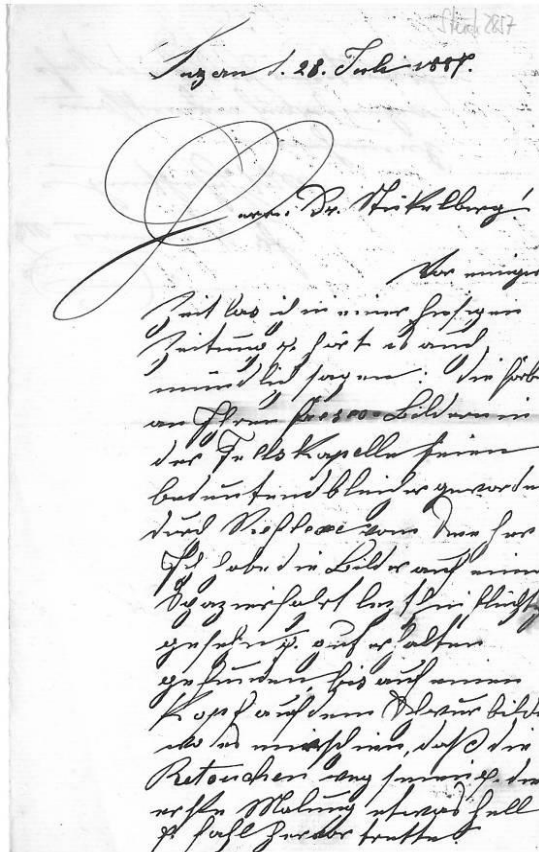 Stück 2857
Luzern d. 28. Juli 1887.
Herrn Dr. Stückelberg!
Vor einiger
Zeit las ich in einer hiesigen
Zeitung & hört es auch
mündlich sagen: die Farbe
an Ihren Fresco-Bildern in
der Tellskapelle seien
bedeutend bleicher geworde
durch Reflexe vom See her
Ich habe die Bilder auf eine
Spazierfahrt letzthin flücht
gesehen & gut erhalten
gefunden, bis auf einen
Kopf auf dem Schwurbild
wo es mir schien, daß die
Retouchen weg seien & die
erste Malung etwas hell
& fahl hervor trette.